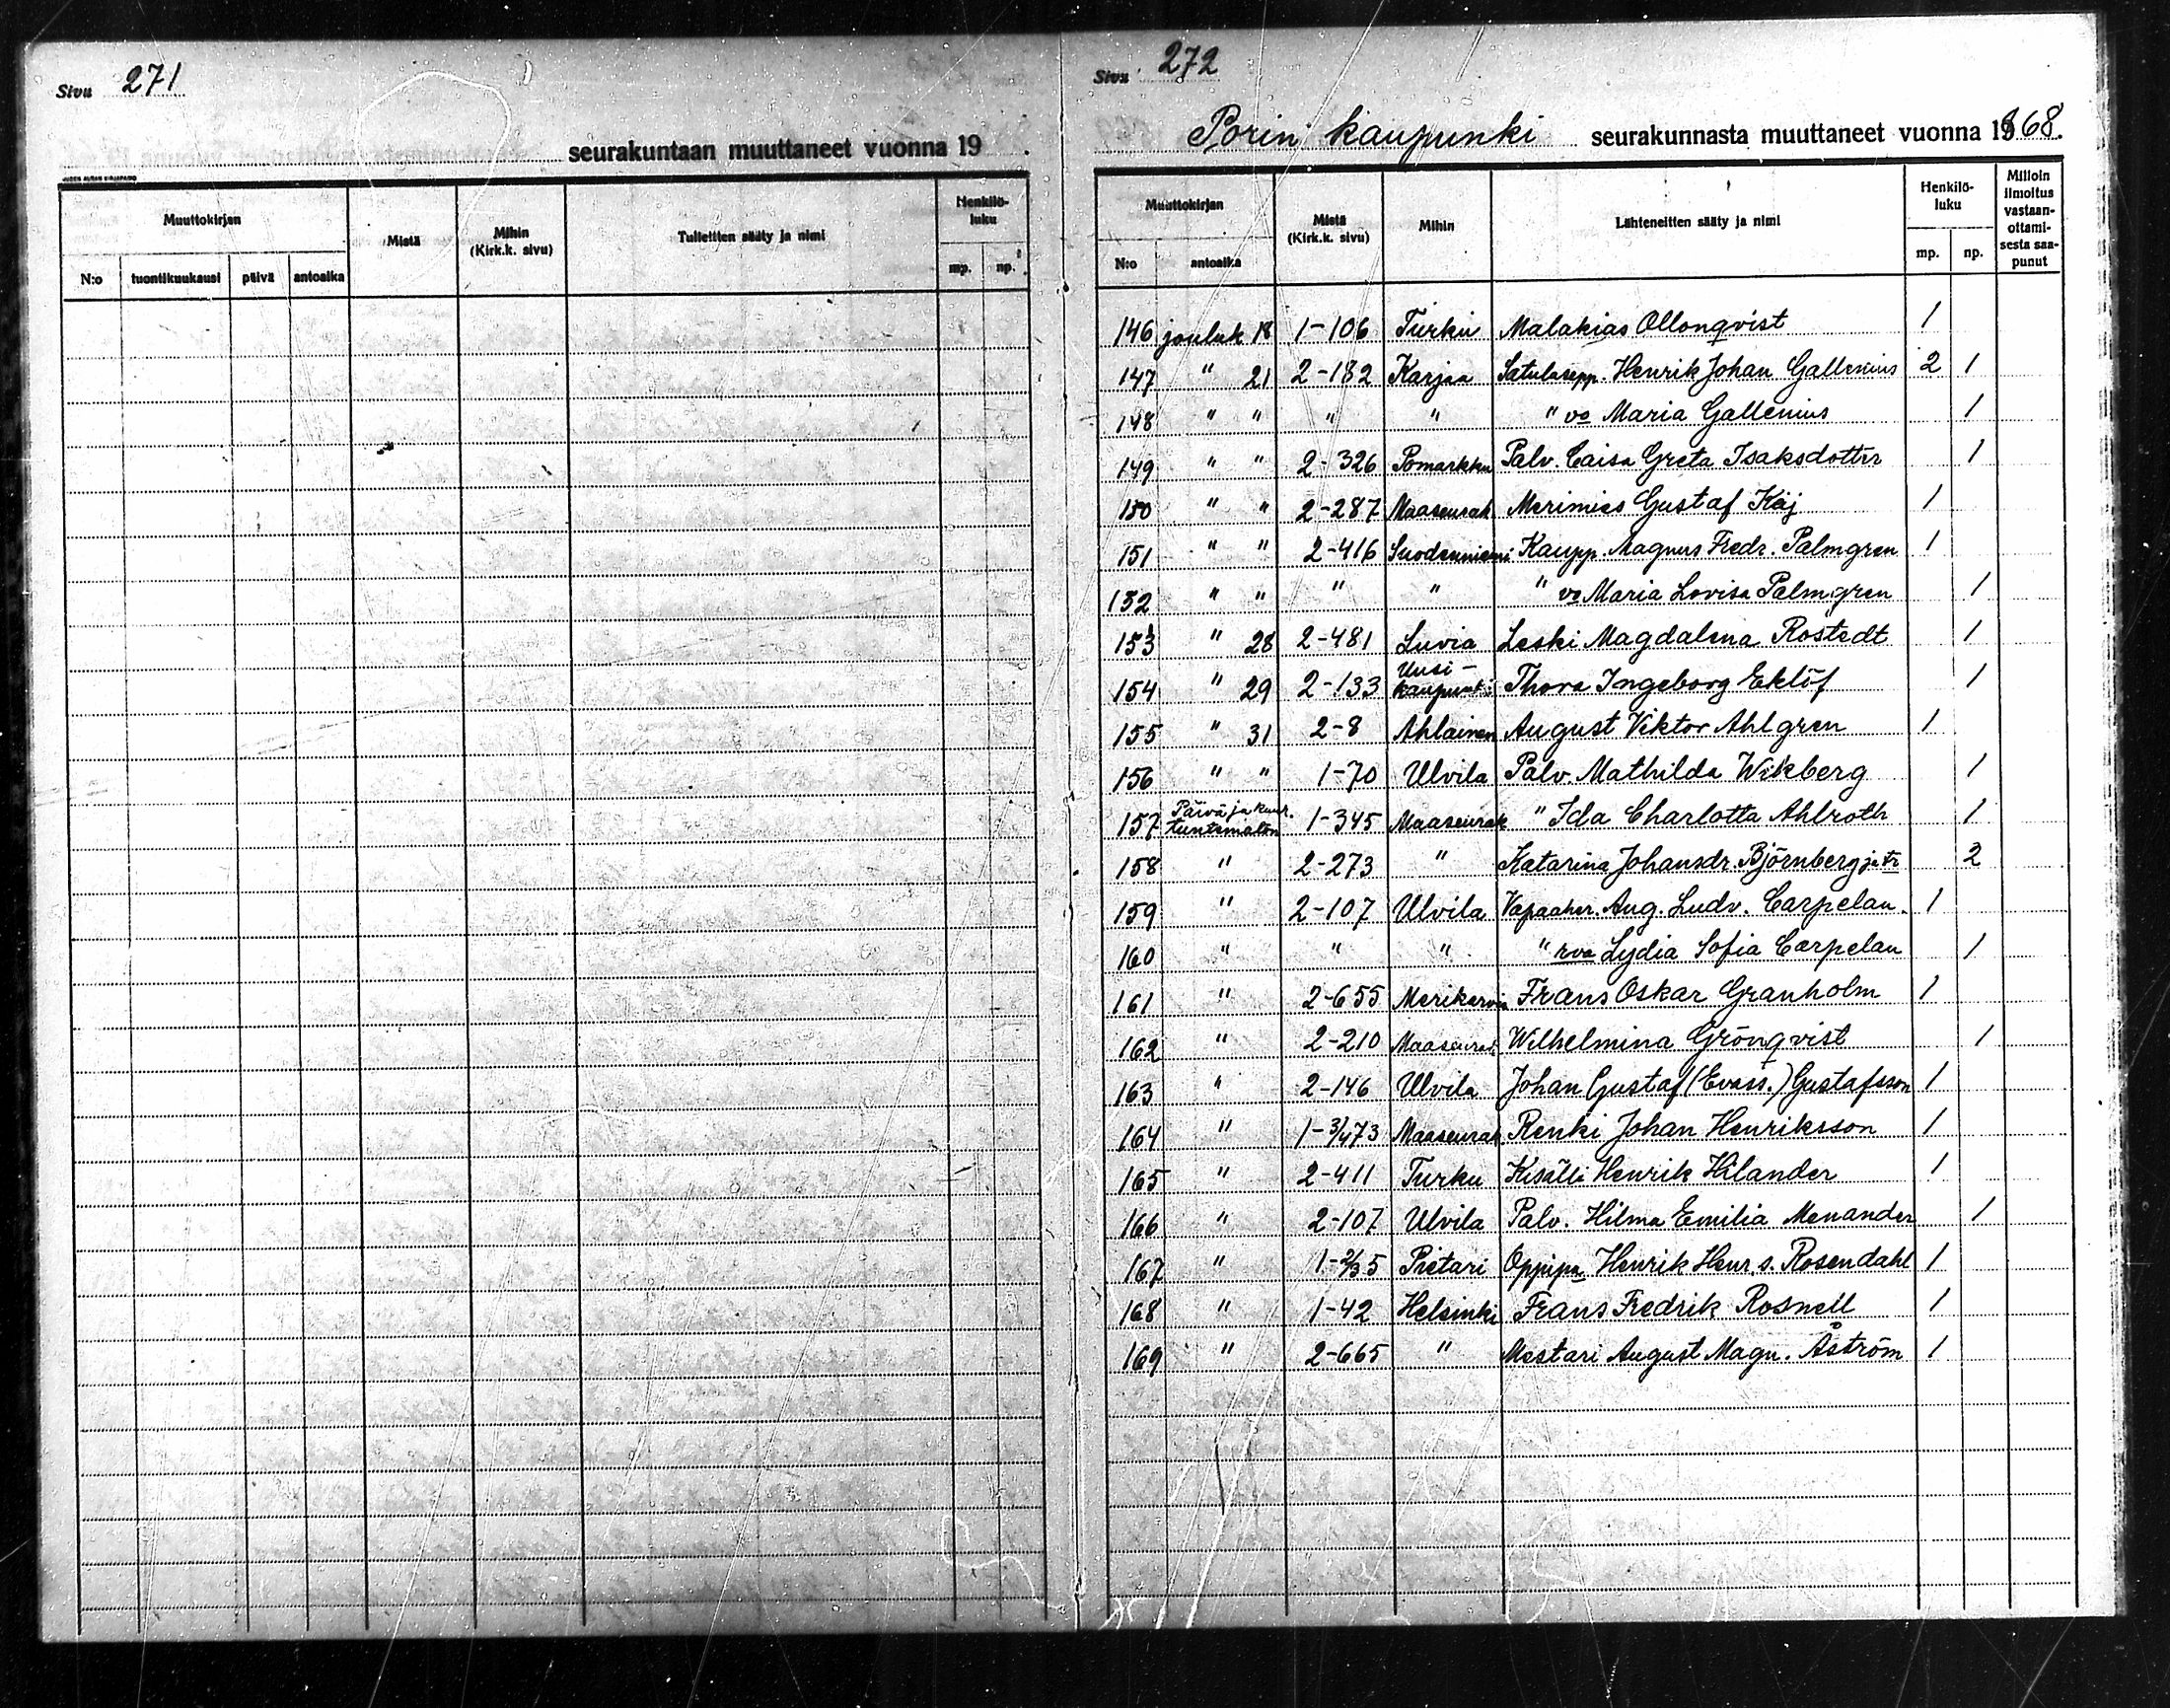 Sivu 271
seurakuntaan muuttaneet vuonna 19 .
UUDEN AURAN KIRJAPAINO
Muuttokirjan
Mistä
Mihin
(Kirk.k. sivu)
Tulleitten sääty ja nimi
Henkilö-
luku
N:o tuontikuukausi päivä antoaika
mp. np.
Sivu 272
Porin kaupunki seurakunnasta muuttaneet vuonna 1868.
Muuttokirjan
Mistä
(Kirk.k. sivu)
Mihin
Lähteneitten sääty ja nimi
Henkilö-
luku
Milloin
ilmoitus
vastaan-
ottami-
sesta saa-
punut
N:o antoaika
mp. np.
146 jouluk 18 1-106 Turku Malakias Ollonqvist 1
147 " 21 2-182 Karjaa Satulasepp. Henrik Johan Gallenius 2 1
148 " " " " " vo Maria Gallenius 1
149 " " 2-326 Pomarkku Palv. Caisa Greta Isaksdotter 1
150 " " 2-287 Maaseurak Merimies Gustaf Käj 1
151 " " 2-416 Suodenniemi Kaupp. Magnus Fredr. Palmgren 1
152 " " " " " vo Maria Lovisa Palmgren 1
153 " 28 2-481 Luvia Leski Magdalena Rostedt 1
154 " 29 2-133 Uusi-
kaupunki Thora Ingeborg Eklöf 1
155 " 31 2-8 Ahlainen August Viktor Ahlgren 1
156 " " 1-70 Ulvila Palv. Mathilda Wikberg 1
157 Päivä ja kuuk.
tuntematon 1-345 Maaseurak " Ida Charlotta Ahlroth 1
158 " 2-273 " Katarina Johansdr. Björnberg ja tr 2
159 " 2-107 Ulvila Vapaaher. Aug. Ludv. Carpelan. 1
160 " " " " rva Lydia Sofia Carpelan 1
161 " 2-655 Merikarvia Frans Oskar Granholm 1
162 " 2-210 Maaseurak Wilhelmina Grönqvist 1
163 " 2-146 Ulvila Johan Gustaf (Evass.) Gustafsson 1
164 " 1-3/473 Maaseurak Renki Johan Henriksson 1
165 " 2-411 Turku Kisälli Henrik Hilander 1
166 " 2-107 Ulvila Palv. Hilma Emilia Menander 1
167 " 1-2/35 Pietari Oppipa Henrik Henr. s. Rosendahl 1
168 " 1-42 Helsinki Frans Fredrik Rosnell 1
169 " 2-665 " Mestari August Magn. Åström 1